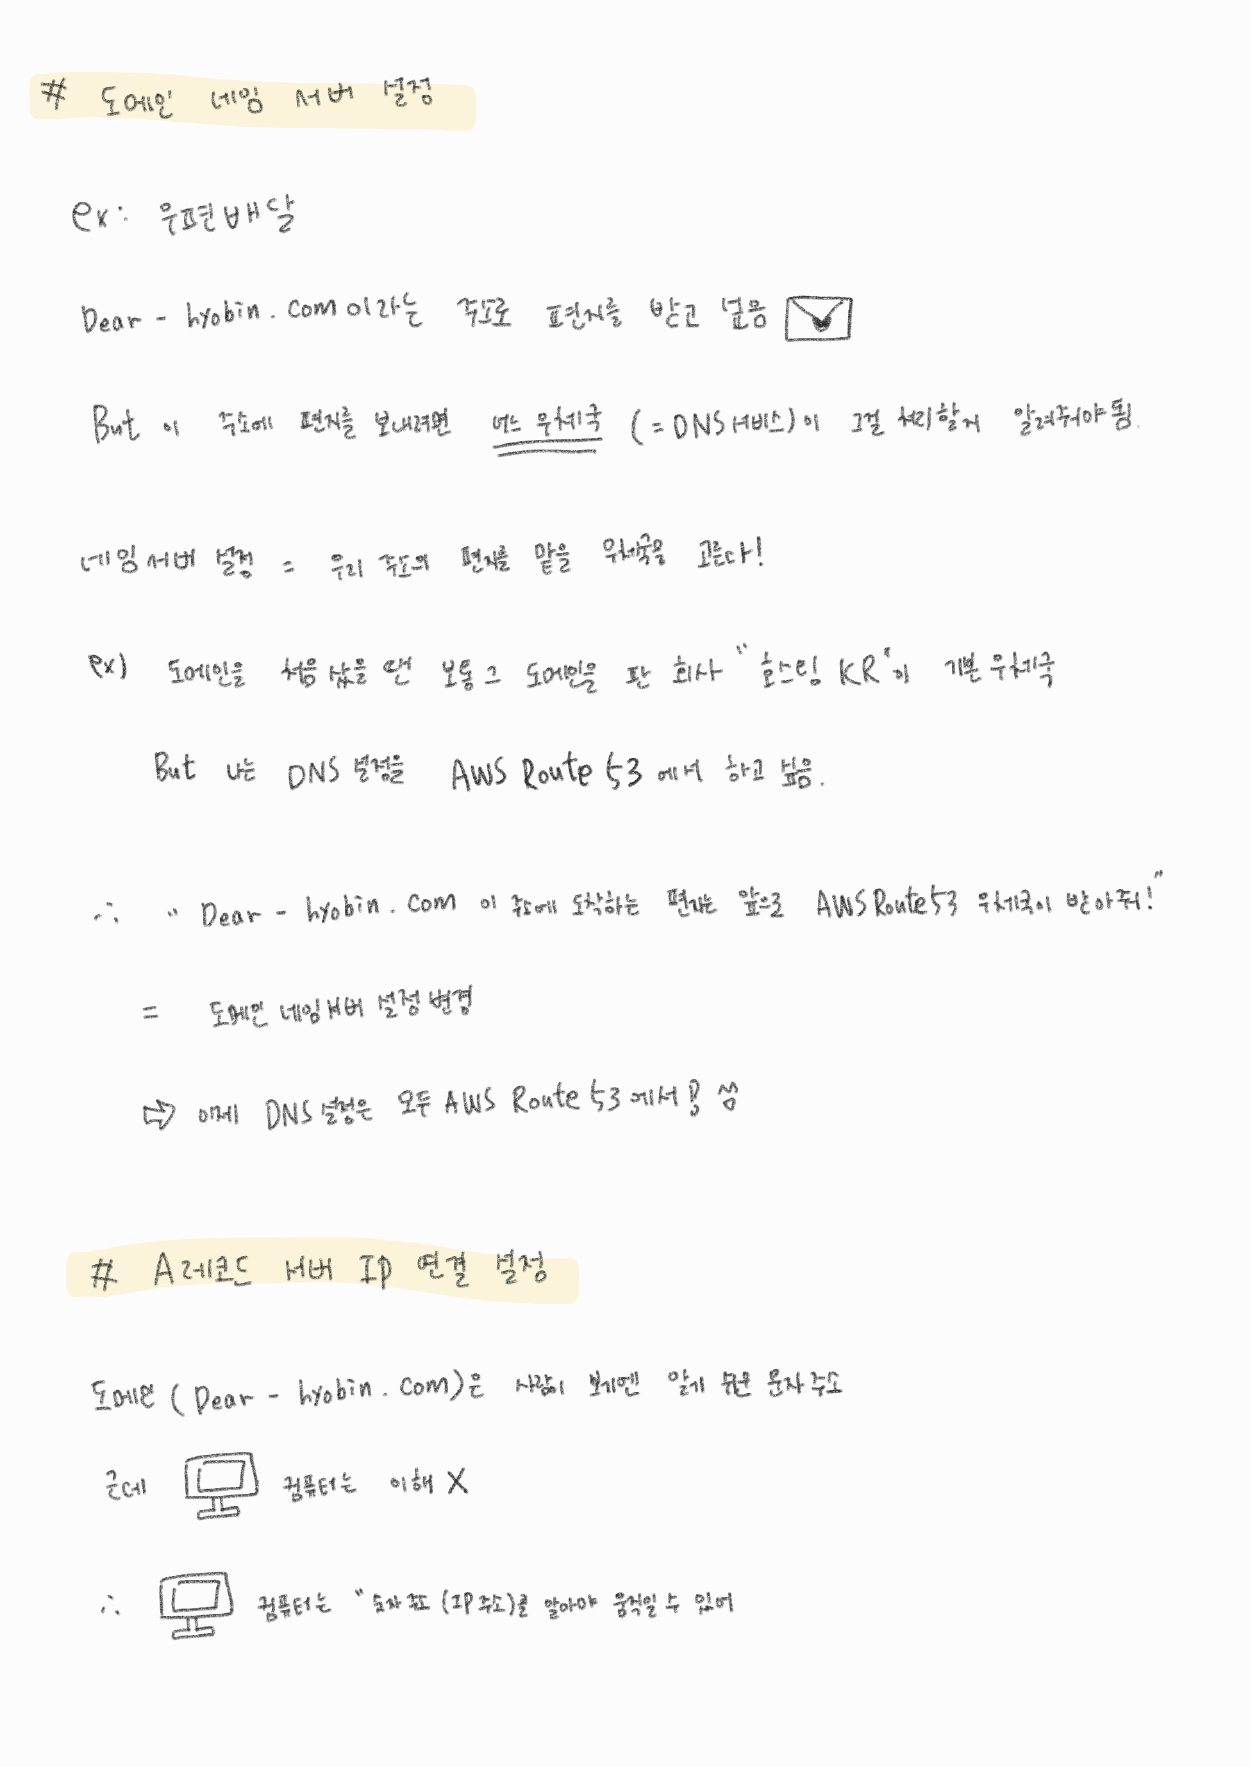 # 도메인 네임 서버 설정
ex: 우편배달
Dear - hyobin . com이라는 주소로 편지를 받고 싶음
But 이 주소에 편지를 보내려면 어느 우체국 (= DNS 서비스)이 그걸 처리할지 알려줘야됨.
네임서버 설정 = 우리 주소의 편지를 맡을 우체국을 고른다!
ex) 도메인을 처음 샀을 땐 보통 그 도메인을 판 회사 "호스팅 KR"이 기본 우체국
But 나는 DNS 설정을 AWS Route 53 에서 하고 싶음.
∴ " Dear - hyobin . com 이 주소에 도착하는 편지는 앞으로 AWS Route 53 우체국이 받아줘!"
= 도메인 네임서버 설정 변경
⇨ 이제 DNS 설정은 모두 AWS Route 53 에서!
# A레코드 서버 IP 연결 설정
도메인 (Dear - hyobin . com)은 사람이 보기엔 알기 쉬운 문자 주소
근데 컴퓨터는 이해 X
∴ 컴퓨터는 " 숫자 주소 (IP 주소)를 알아야 움직일 수 있어